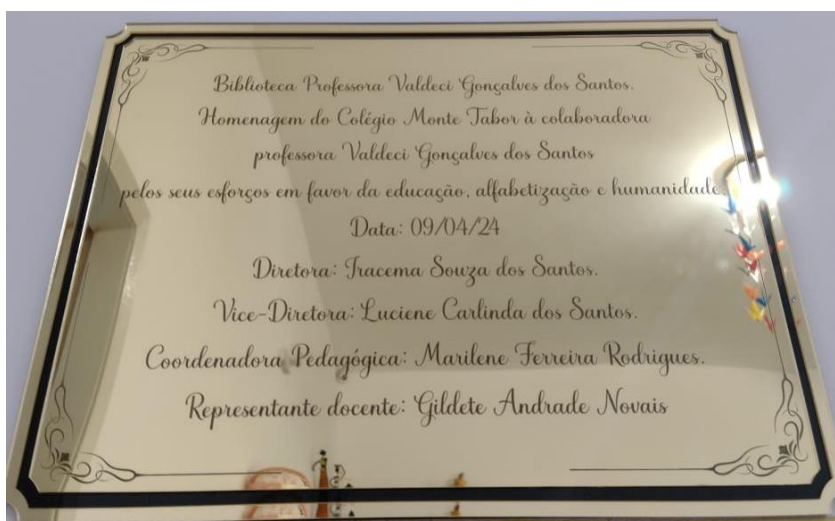 Biblioteca Professora Valdeci Gonçalves dos Santos.
Homenagem do Colégio Monte Tabor à colaboradora
professora Valdeci Gonçalves dos Santos
pelos seus esforços em favor da educação, alfabetização e humanidade.
Data: 09/04/24
Diretora: Iracema Souza dos Santos.
Vice-Diretora: Luciene Carlinda dos Santos.
Coordenadora Pedagógica: Marilene Ferreira Rodrigues.
Representante docente: Gildete Andrade Novais